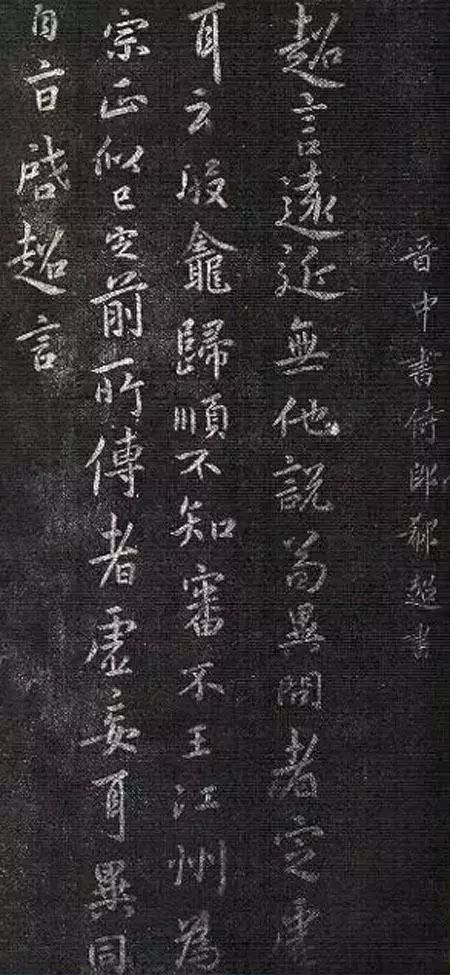 晉中書侍郎郗超書
超言遠近無他說異問者定虛
耳云段龕歸順不知審不王江州為
宗正似已定前所傳者虛妄耳異同
自啓超言